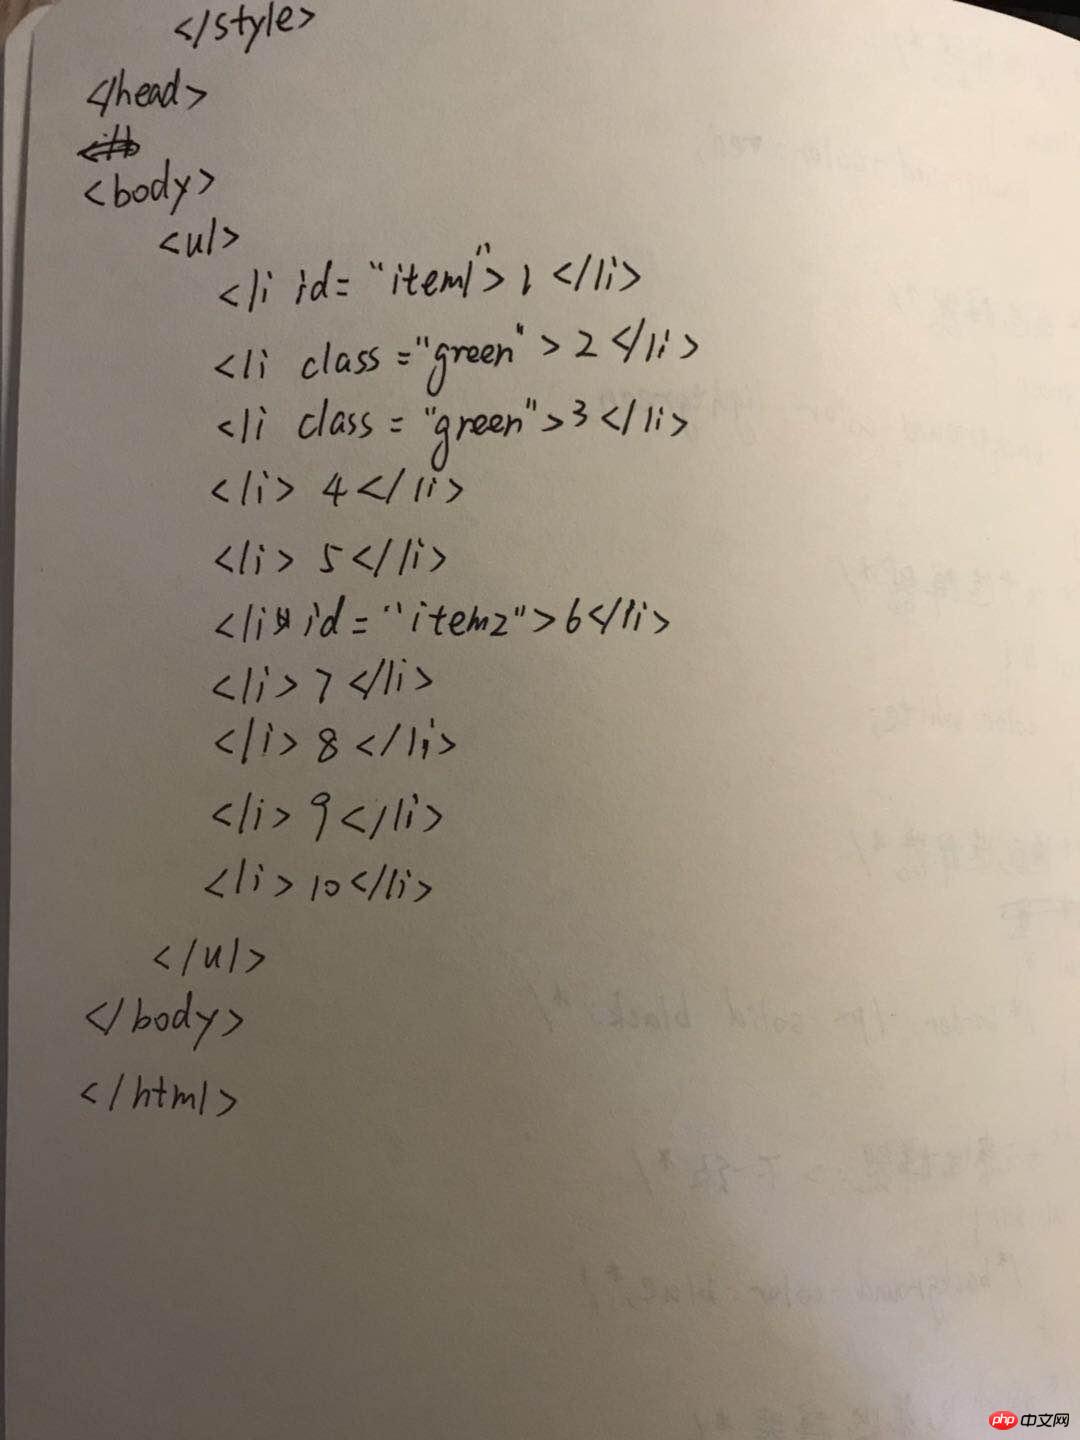 </style>
</head>
<body>
<ul>
<li id="item1">1</li>
<li class="green">2</li>
<li class="green">3</li>
<li>4</li>
<li>5</li>
<li id="item2">6</li>
<li>7</li>
<li>8</li>
<li>9</li>
<li>10</li>
</ul>
</body>
</html>
php 中文网